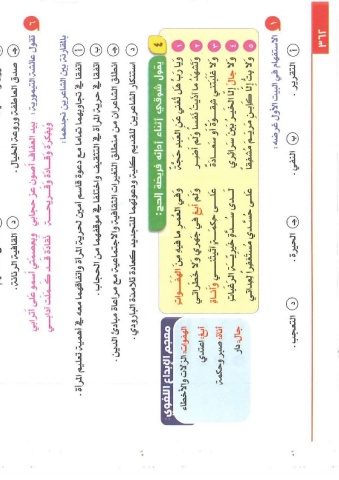 ج صدق العاطفة وروعة الخيال. د القافية الرنانة.
٦ تقول عائشة التيمورية: بيد العفاف أصون عز حجابي وبعصمتي أسمو على أترابي
وبفكرة وقادة وقريحة نقادة قد كملت آدابي
بالمقارنة بين الشاعرين نجدهما:
أ اتفقا في تجاوبهما تماما مع دعوة قاسم أمين لحرية المرأة واتفاقهما معه في أهمية تعليم المرأة.
ب اتفقا في حرية المرأة في التثقيف واختلفا في موقفهما من الحجاب.
ج انطلق الشاعران من منطلق التغيرات الثقافية والاجتماعية مع مراعاة مبادئ الدين.
د استنكار الشاعرين للقديم كلية ودعوتهما للتجديد كعادة تلامذة البارودي.
٤ يقول شوقي أثناء أدائه فريضة الحج:
١ ويا رب هل تغني عن العبد حجة وفي العمر ما فيه من الهفوات
٢ وتشهد ما آذيت نفسا ولم أضر ولم أبغ في جهري ولا خطراتي
٣ ولا غلبتني شقوة أو سعادة على حكمة آتيتني وأناة
٤ ولا جال إلا الخير بين سرائري لدى سدة خيرية الرغبات
٥ ولا بت إلا كابن مريم مشفقا على حسدي مستغفرا لعداتي
معجم الإبداع اللغوي
الهفوات: الزلات والأخطاء
أبغ: أعتدي
أناة: صبر وحكمة
جال: دار
١ الاستفهام في البيت الأول غرضه:
أ التقرير. ب النفي. ج الحيرة. د التعجب.
٣٦٢